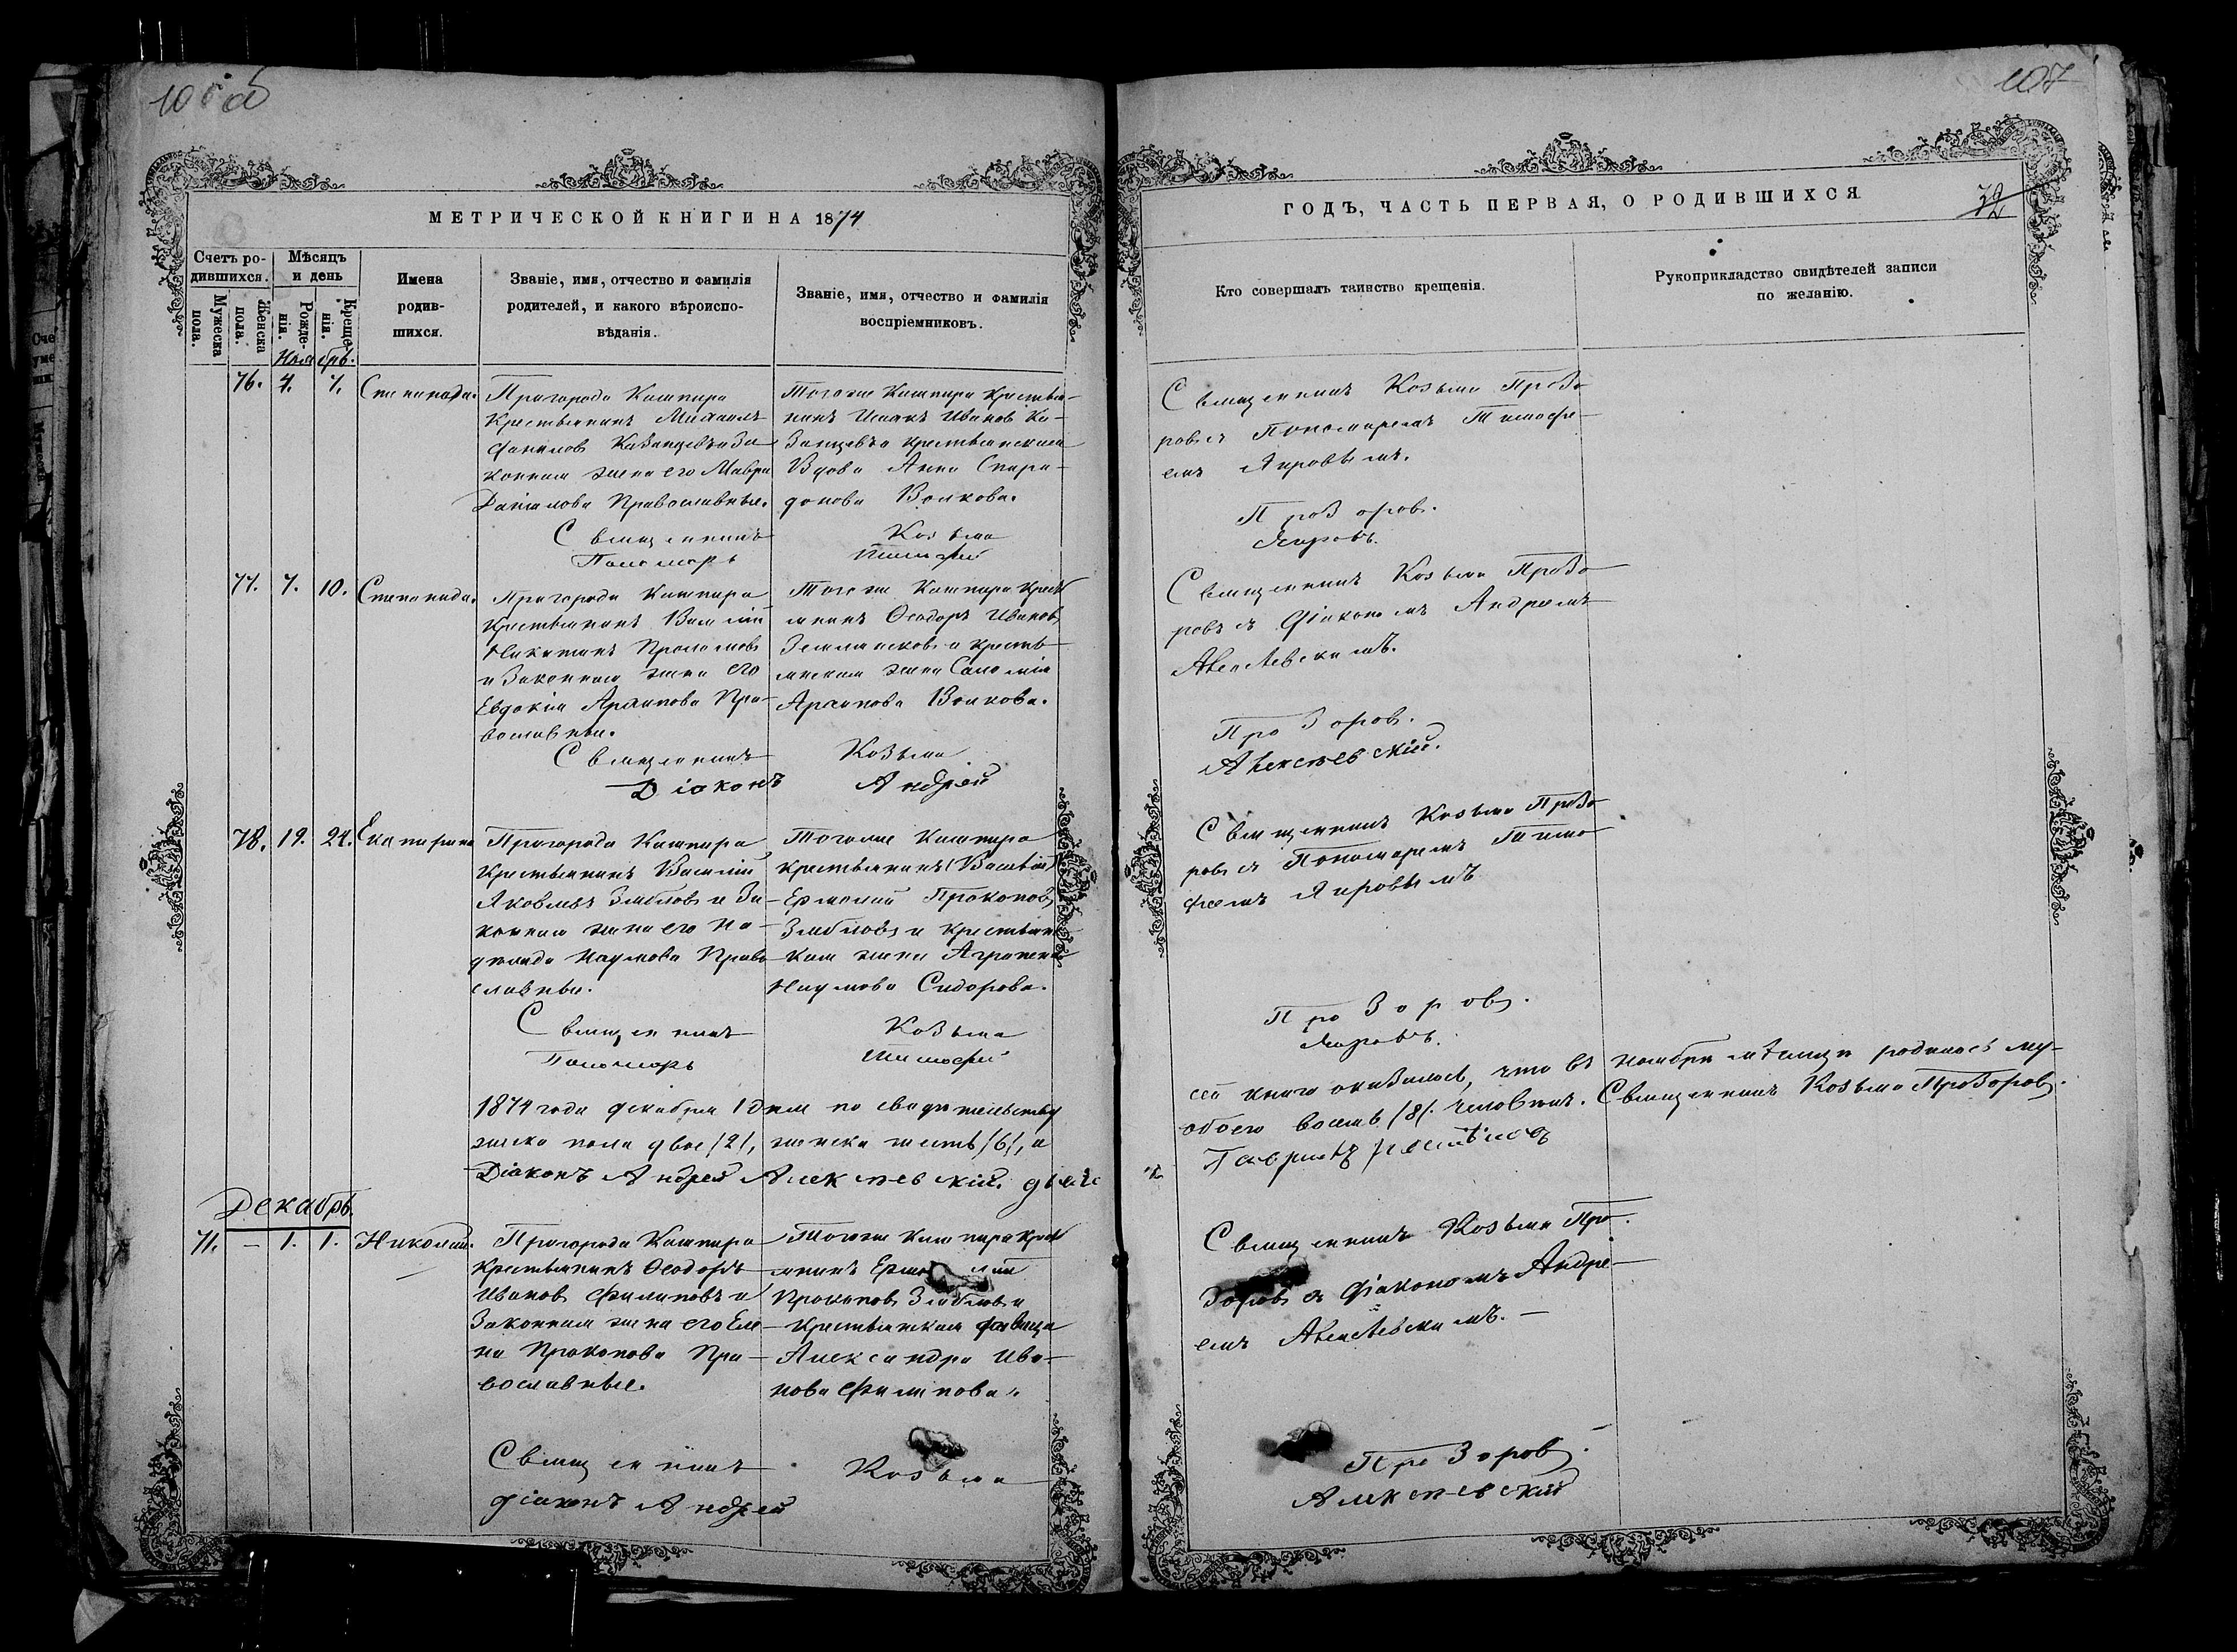 106 об
МЕТРИЧЕСКОЙ КНИГИ НА 1874
Счетъ ро-
дившихся.
Мужеска
пола.
Женска
пола.
Мѣсяцъ
и день
Рожде-
нія.
Креще-
нія.
Имена
родив-
шихся.
Званіе, имя, отчество и фамилія
родителей, и какого вѣроиспо-
вѣданія.
Званіе, имя, отчество и фамилія
воспріемниковъ.
Ноябрь.
76. 4. 7. Степанида.
Пригорода Кашпира
Крестьянинъ Михаилъ
Казанцевъ и За-
конная жена его Мавра
Данилова Православные.
Тогоже Кашпира Крестья-
нинъ Исаакъ Ивановъ Ка-
занцевъ и крестьянская
Вдова Анна Спири-
донова Волкова.
Священникъ Козьма
Пономарь Тимофей
77. 7. 10. Степанида.
Пригорода Кашпира
Крестьянинъ Василій
Никитинъ
и Законная жена его
Евдокія Архипова Пра-
вославные.
Тогоже Кашпира Кресть
янинъ Ѳеодоръ Ивановъ
и кресть-
янская жена Саломія
Архипова Волкова.
Священникъ Козьма
Діаконъ Андрей
78. 19. 24. Екатерина
Пригорода Кашпира
Крестьянинъ Василій
Яковлевъ Зябловъ и За-
конная жена его На-
Наумова Право-
славные.
Тогоже Кашпира
крестьянинъ (Василій)
Ермолай Прокоповъ
Зябловъ и крестьянс-
кая жена Агрипена
Наумова Сидорова.
Священникъ Козьма
Пономарь Тимофей
1874 года декабря 1 дня по свидѣтельству
жеска пола двое /2/, женска шесть /6/, а
Діаконъ Андрей Алексѣевскій.
Декабрь.
71. – 1. 1. Николай.
Пригорода Кашпира
Крестьянинъ Ѳеодоръ
Ивановъ Филиповъ и
Законная жена его Еле-
на Прокопова Пра-
вославные.
Тогоже Кашпира Крест
янинъ Ермолай
Прокоповъ Зябловъ и
Крестьянская дѣвица
Александра Ива-
нова Филипова.
Священникъ Козьма
Діаконъ Андрей
107
ГОДЪ, ЧАСТЬ ПЕРВАЯ, О РОДИВШИХСЯ
Кто совершалъ таинство крещенія.
Рукоприкладство свидѣтелей записи
по желанію.
Священникъ Козьма Прозо-
ровъ съ Пономаремъ Тимофе-
емъ Яировымъ.
Прозоровъ.
Яировъ.
Священникъ Козьма Прозо-
ровъ съ Діакономъ Андреемъ
Алексѣевскимъ.
Прозоровъ.
Алексѣевскій.
Священникъ Козьма Прозо-
ровъ съ Пономаремъ Тимо-
феемъ Яировымъ
Прозоровъ.
Яировъ.
сей книги оказалось, что въ ноябрѣ мѣсяцѣ родилось му-
обоего восемь /8/. человѣкъ. Священникъ Козьма Прозоровъ.
Священникъ Козьма Про-
зоровъ съ Діакономъ Андре-
емъ Алексѣевскимъ. –
Прозоровъ.
Алексѣевскій